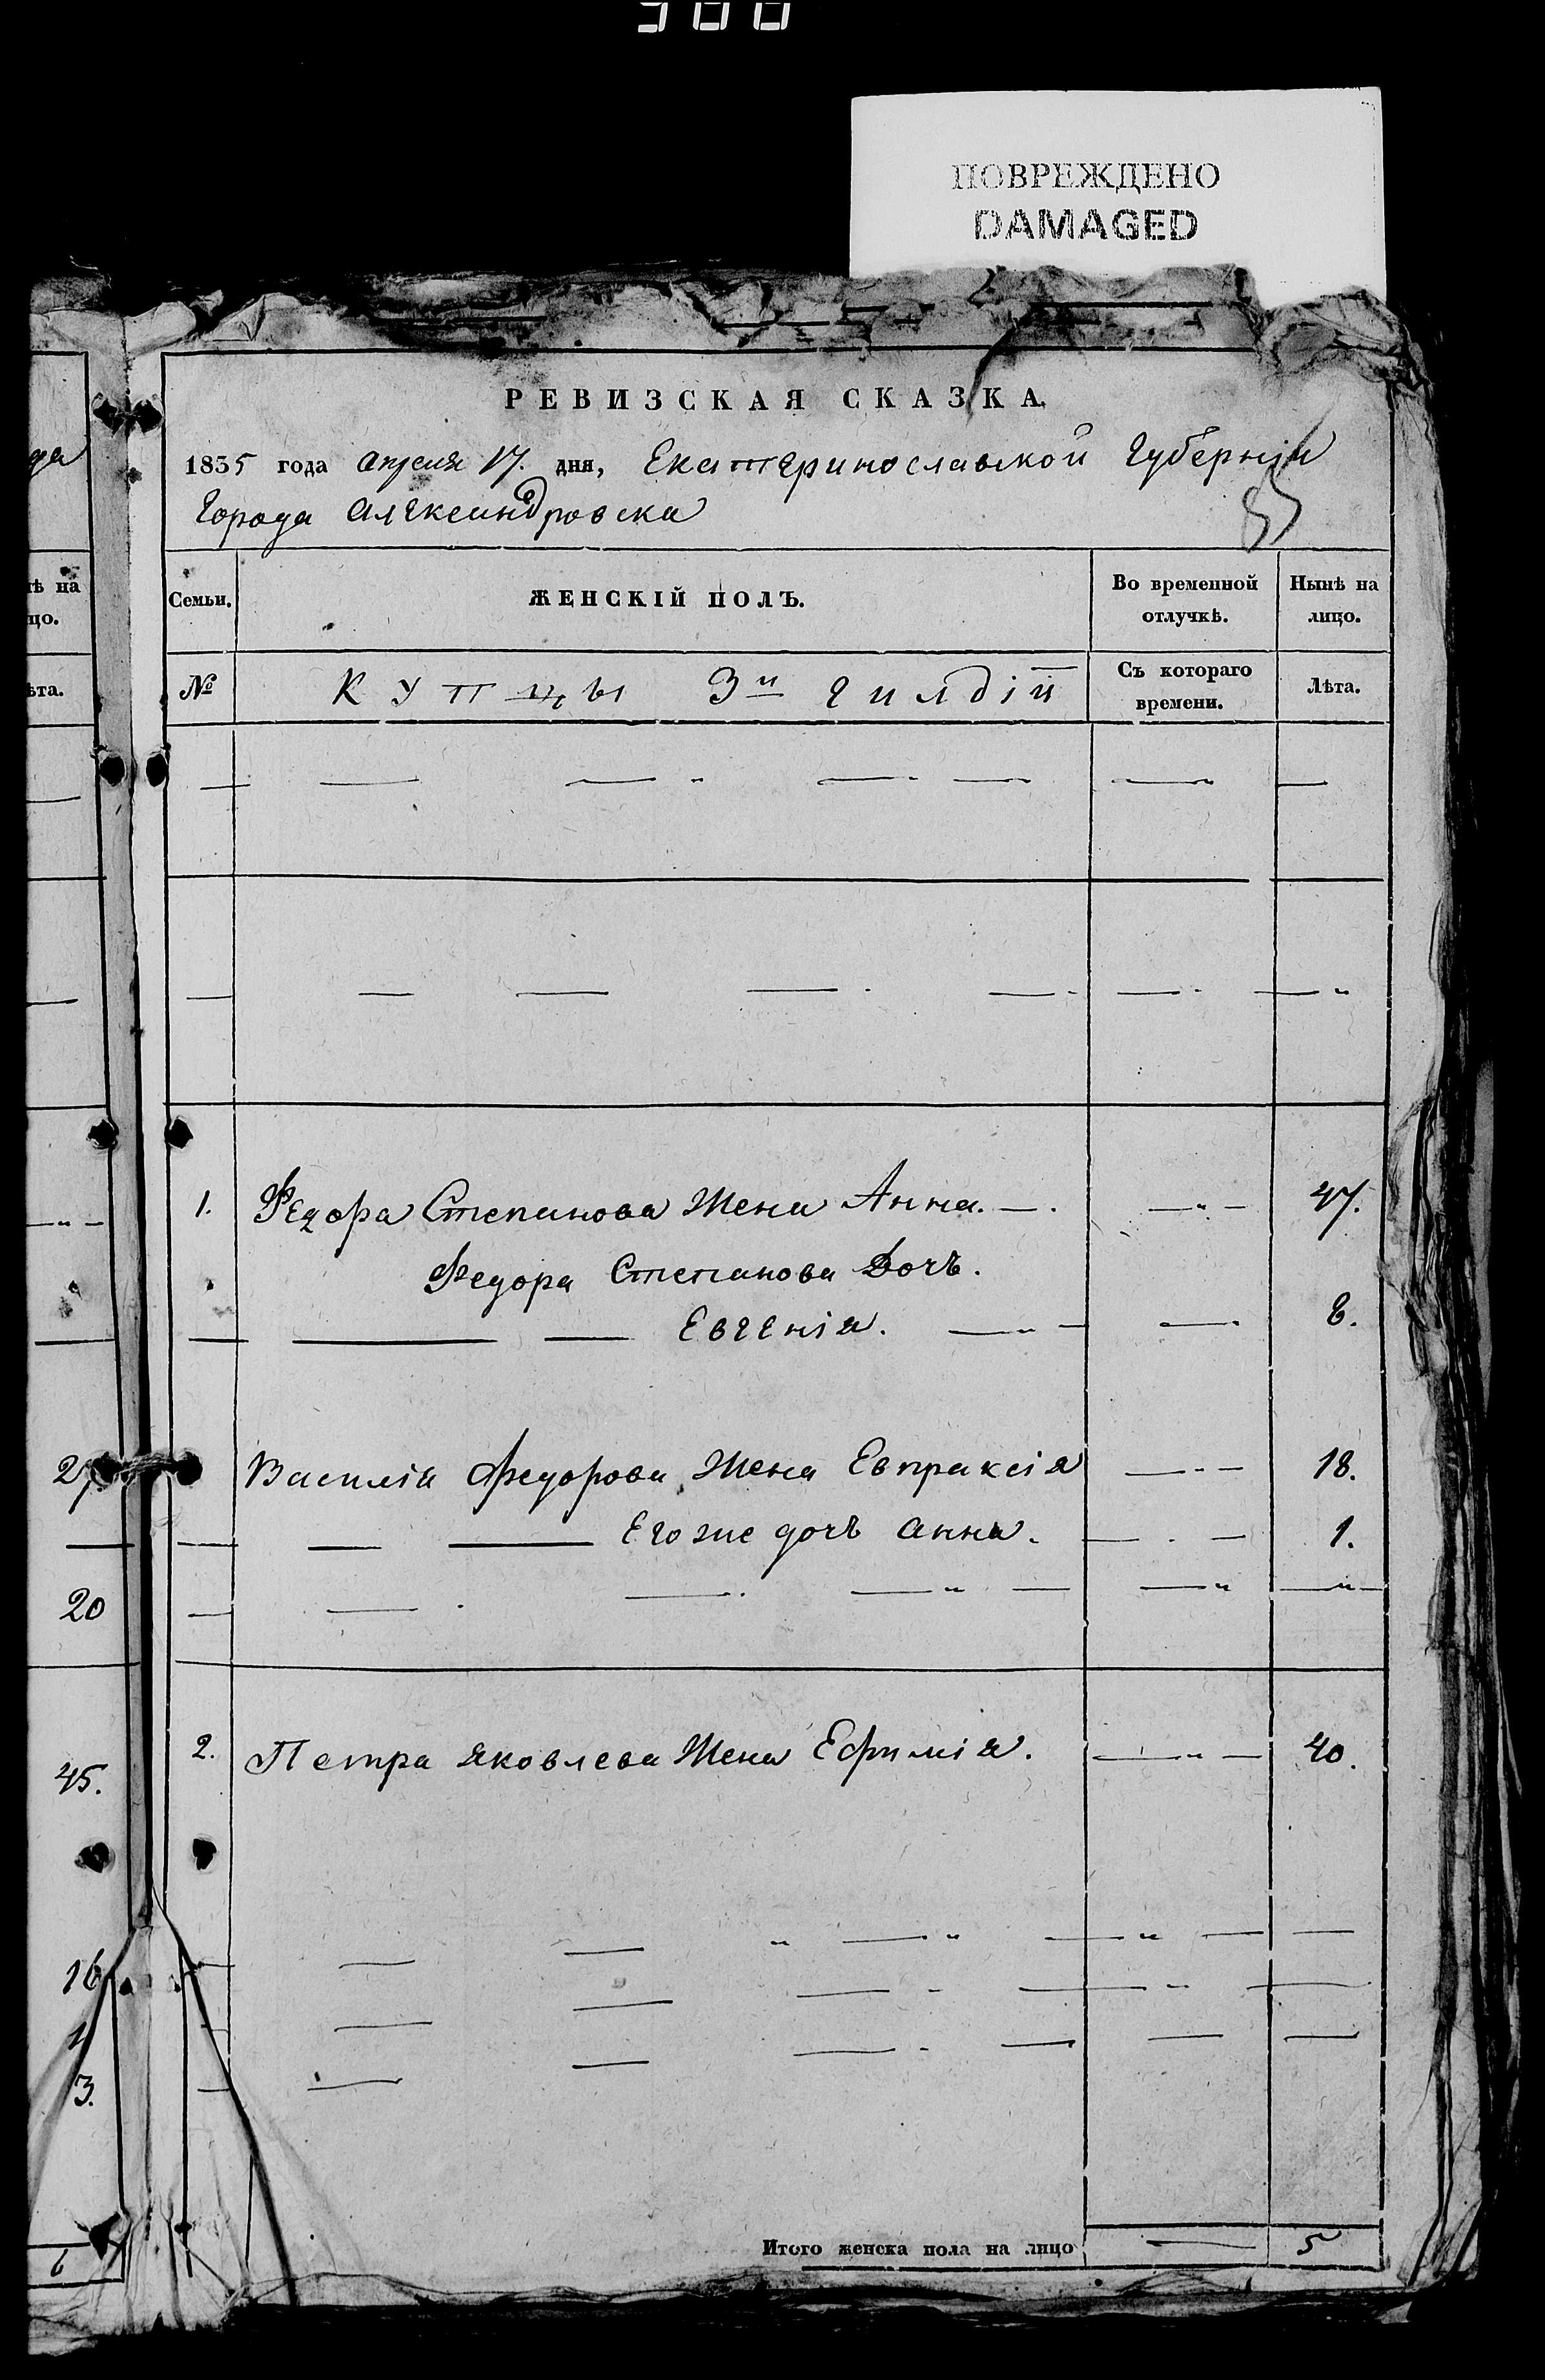 ПОВРЕЖДЕНО
DAMAGED
РЕВИЗСКАЯ СКАЗКА.
1835 года апреля 17. дня, Екатеринославской Губерніи
Города Александровска
Семьи.
ЖЕНСКІЙ ПОЛЪ.
Во временной отлучкѣ.
Нынѣ на лицо.
№
Купцы 3й гилдіи
Съ котораго времени.
Лѣта.
1. Федора Степанова Жена Анна. 47.
Федора Степанова Дочь.
Евгенія. 8.
Василія Федорова Жена Евпраксія 18.
Его же дочь Анна. 1.
20
2. Петра Яковлева Жена Ефимія. 40.
45.
16
3.
Итого женска пола на лицо 5
6